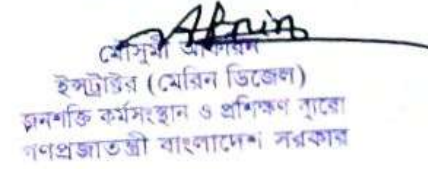 মৌসুমী আফরিন
ইন্সট্রাক্টর (মেরিন ডিজেল)
জনশক্তি কর্মসংস্থান ও প্রশিক্ষণ ব্যুরো
গণপ্রজাতন্ত্রী বাংলাদেশ সরকার